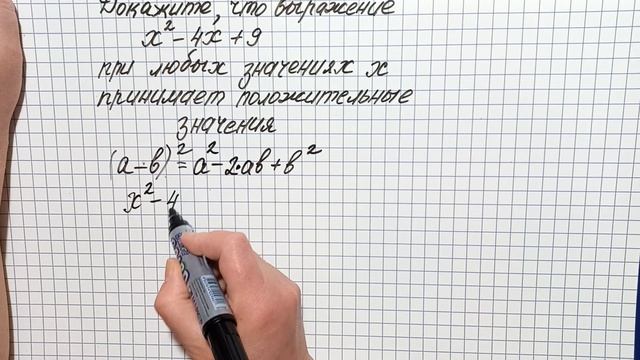 Докажите, что выражение
x² - 4x + 9
при любых значениях x
принимает положительные
значения
(a - b)² = a² - 2·ab + b²
x² - 4